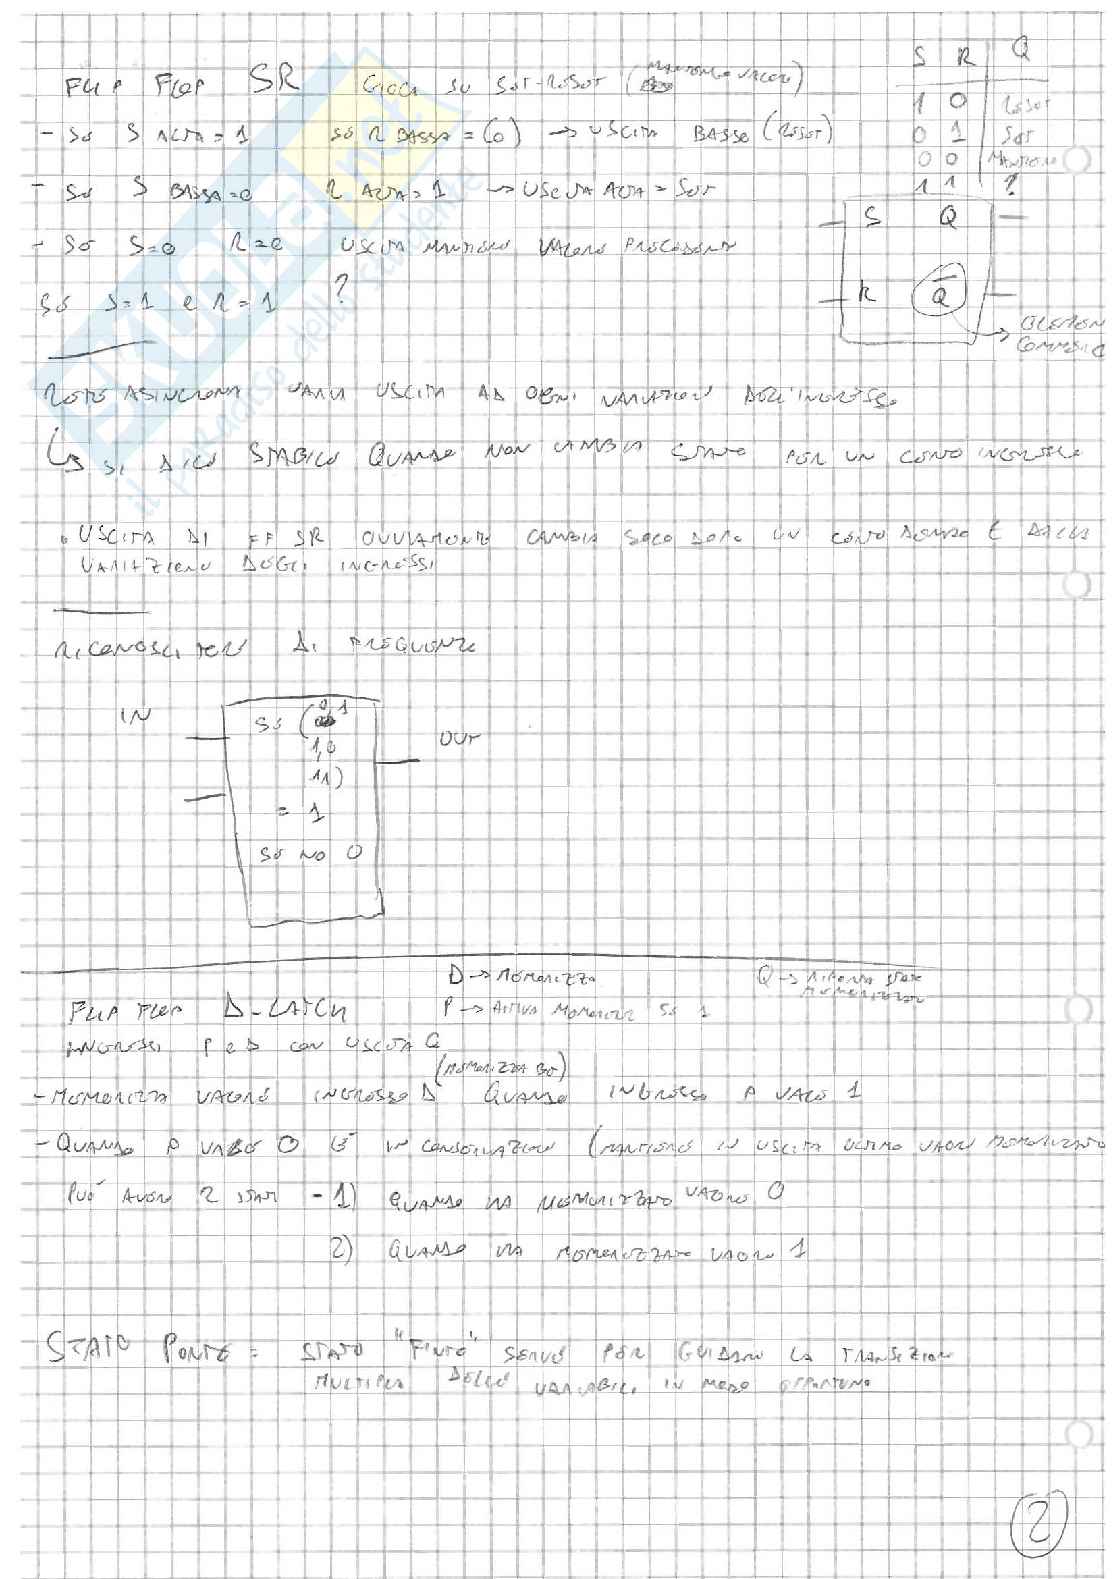 FLIP FLOP SR GIOCA SU SET-RESET (MANTENGO VALORE)
S R Q
1 0 RESET
0 1 SET
0 0 MANTIENE
1 1 ?
- SE S ALTA = 1 SE R BASSA = (0) → USCITA BASSO (RESET)
- SE S BASSA = 0 R ALTA = 1 → USCITA ALTA = SET
- SE S = 0 R = 0 USCITA MANTIENE VALORE PRECEDENTE
SE S = 1 e R = 1 ?
S Q
R Q̅
RETE ASINCRONA VARIA USCITA AD OGNI VARIAZIONE DELL'INGRESSO
↳ SI DICE STABILE QUANDO NON CAMBIA STATO PER UN CERTO INGRESSO
• USCITA DI FF SR OVVIAMENTE CAMBIA SOLO DOPO UN CERTO TEMPO E DALLA
VARIAZIONE DEGLI INGRESSI
RICONOSCITORE DI FREQUENZE
IN
SE (0,1
1,0
11)
= 1
SE NO 0
OUT
D → MEMORIZZA
Q → RIPORTA STATO MEMORIZZATO
FLIP FLOP D-LATCH
P → ATTIVA MEMORIZZ SE 1
INGRESSI P e D CON USCITA Q
- MEMORIZZA VALORE INGRESSO D QUANDO INGRESSO P VALE 1
- QUANDO P VALE 0 È IN CONSERVAZIONE (MANTIENE IN USCITA ULTIMO VALORE MEMORIZZATO
PUÒ AVERE 2 STATI - 1) QUANDO HA MEMORIZZATO VALORE 0
2) QUANDO HA MEMORIZZATO VALORE 1
STATO PONTE = STATO "FINTO" SERVE PER GUIDARE LA TRANSIZIONE
MULTIPLA DELLE VARIABILI IN MODO OPPORTUNO
2
SKUOLA.net
il paradiso dello studente